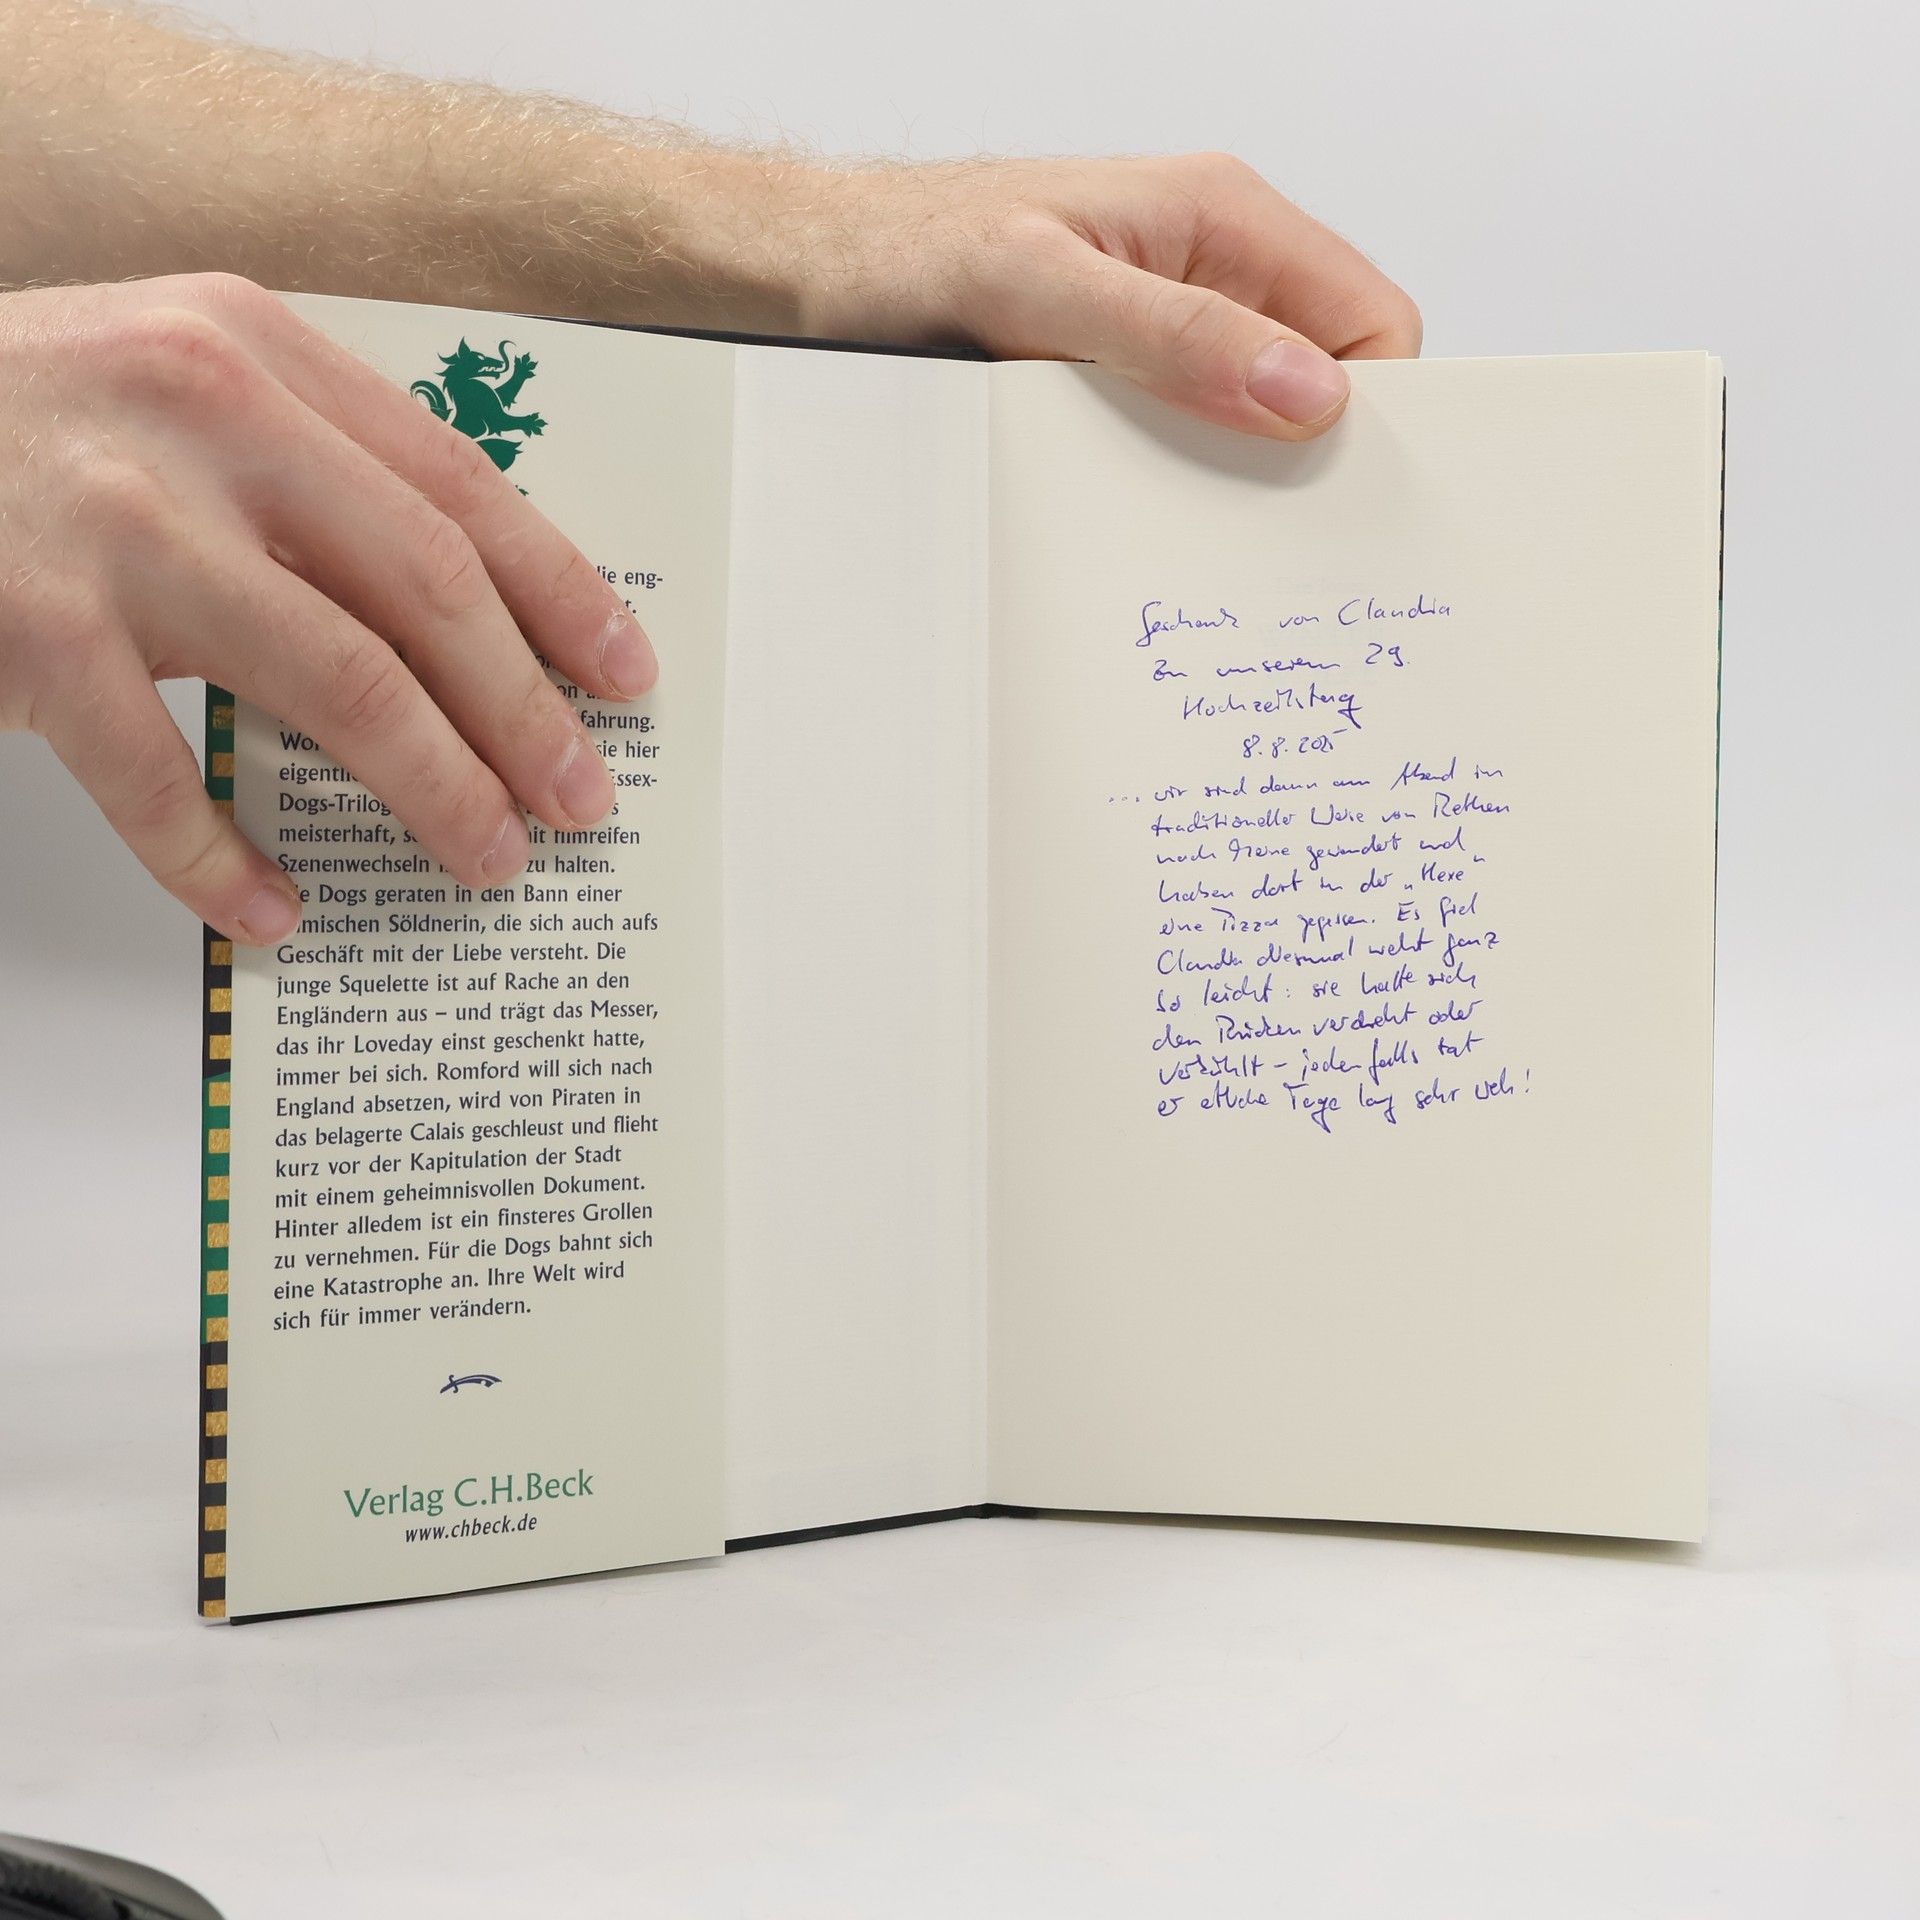 die eng-
t.
fahrung.
sie hier
eigentlic
Essex-
Dogs-Trilog
meisterhaft, s mit filmreifen
Szenenwechseln zu halten.
e Dogs geraten in den Bann einer
mischen Söldnerin, die sich auch aufs
Geschäft mit der Liebe versteht. Die
junge Squelette ist auf Rache an den
Engländern aus – und trägt das Messer,
das ihr Loveday einst geschenkt hatte,
immer bei sich. Romford will sich nach
England absetzen, wird von Piraten in
das belagerte Calais geschleust und flieht
kurz vor der Kapitulation der Stadt
mit einem geheimnisvollen Dokument.
Hinter alledem ist ein finsteres Grollen
zu vernehmen. Für die Dogs bahnt sich
eine Katastrophe an. Ihre Welt wird
sich für immer verändern.
Verlag C.H.Beck
www.chbeck.de
Geschenk von Claudia
zu unserem 29.
Hochzeitstag
8.8.2025
... wir sind dann am Abend in
traditioneller Weise von Rethen
nach gewandert und
haben dort in der „Hexe"
eine Pizza gegessen. Es fiel
Claudia diesmal nicht ganz
so leicht: sie hatte sich
den Rücken verdreht oder
verkühlt – jedenfalls tat
er etliche Tage lang sehr weh!